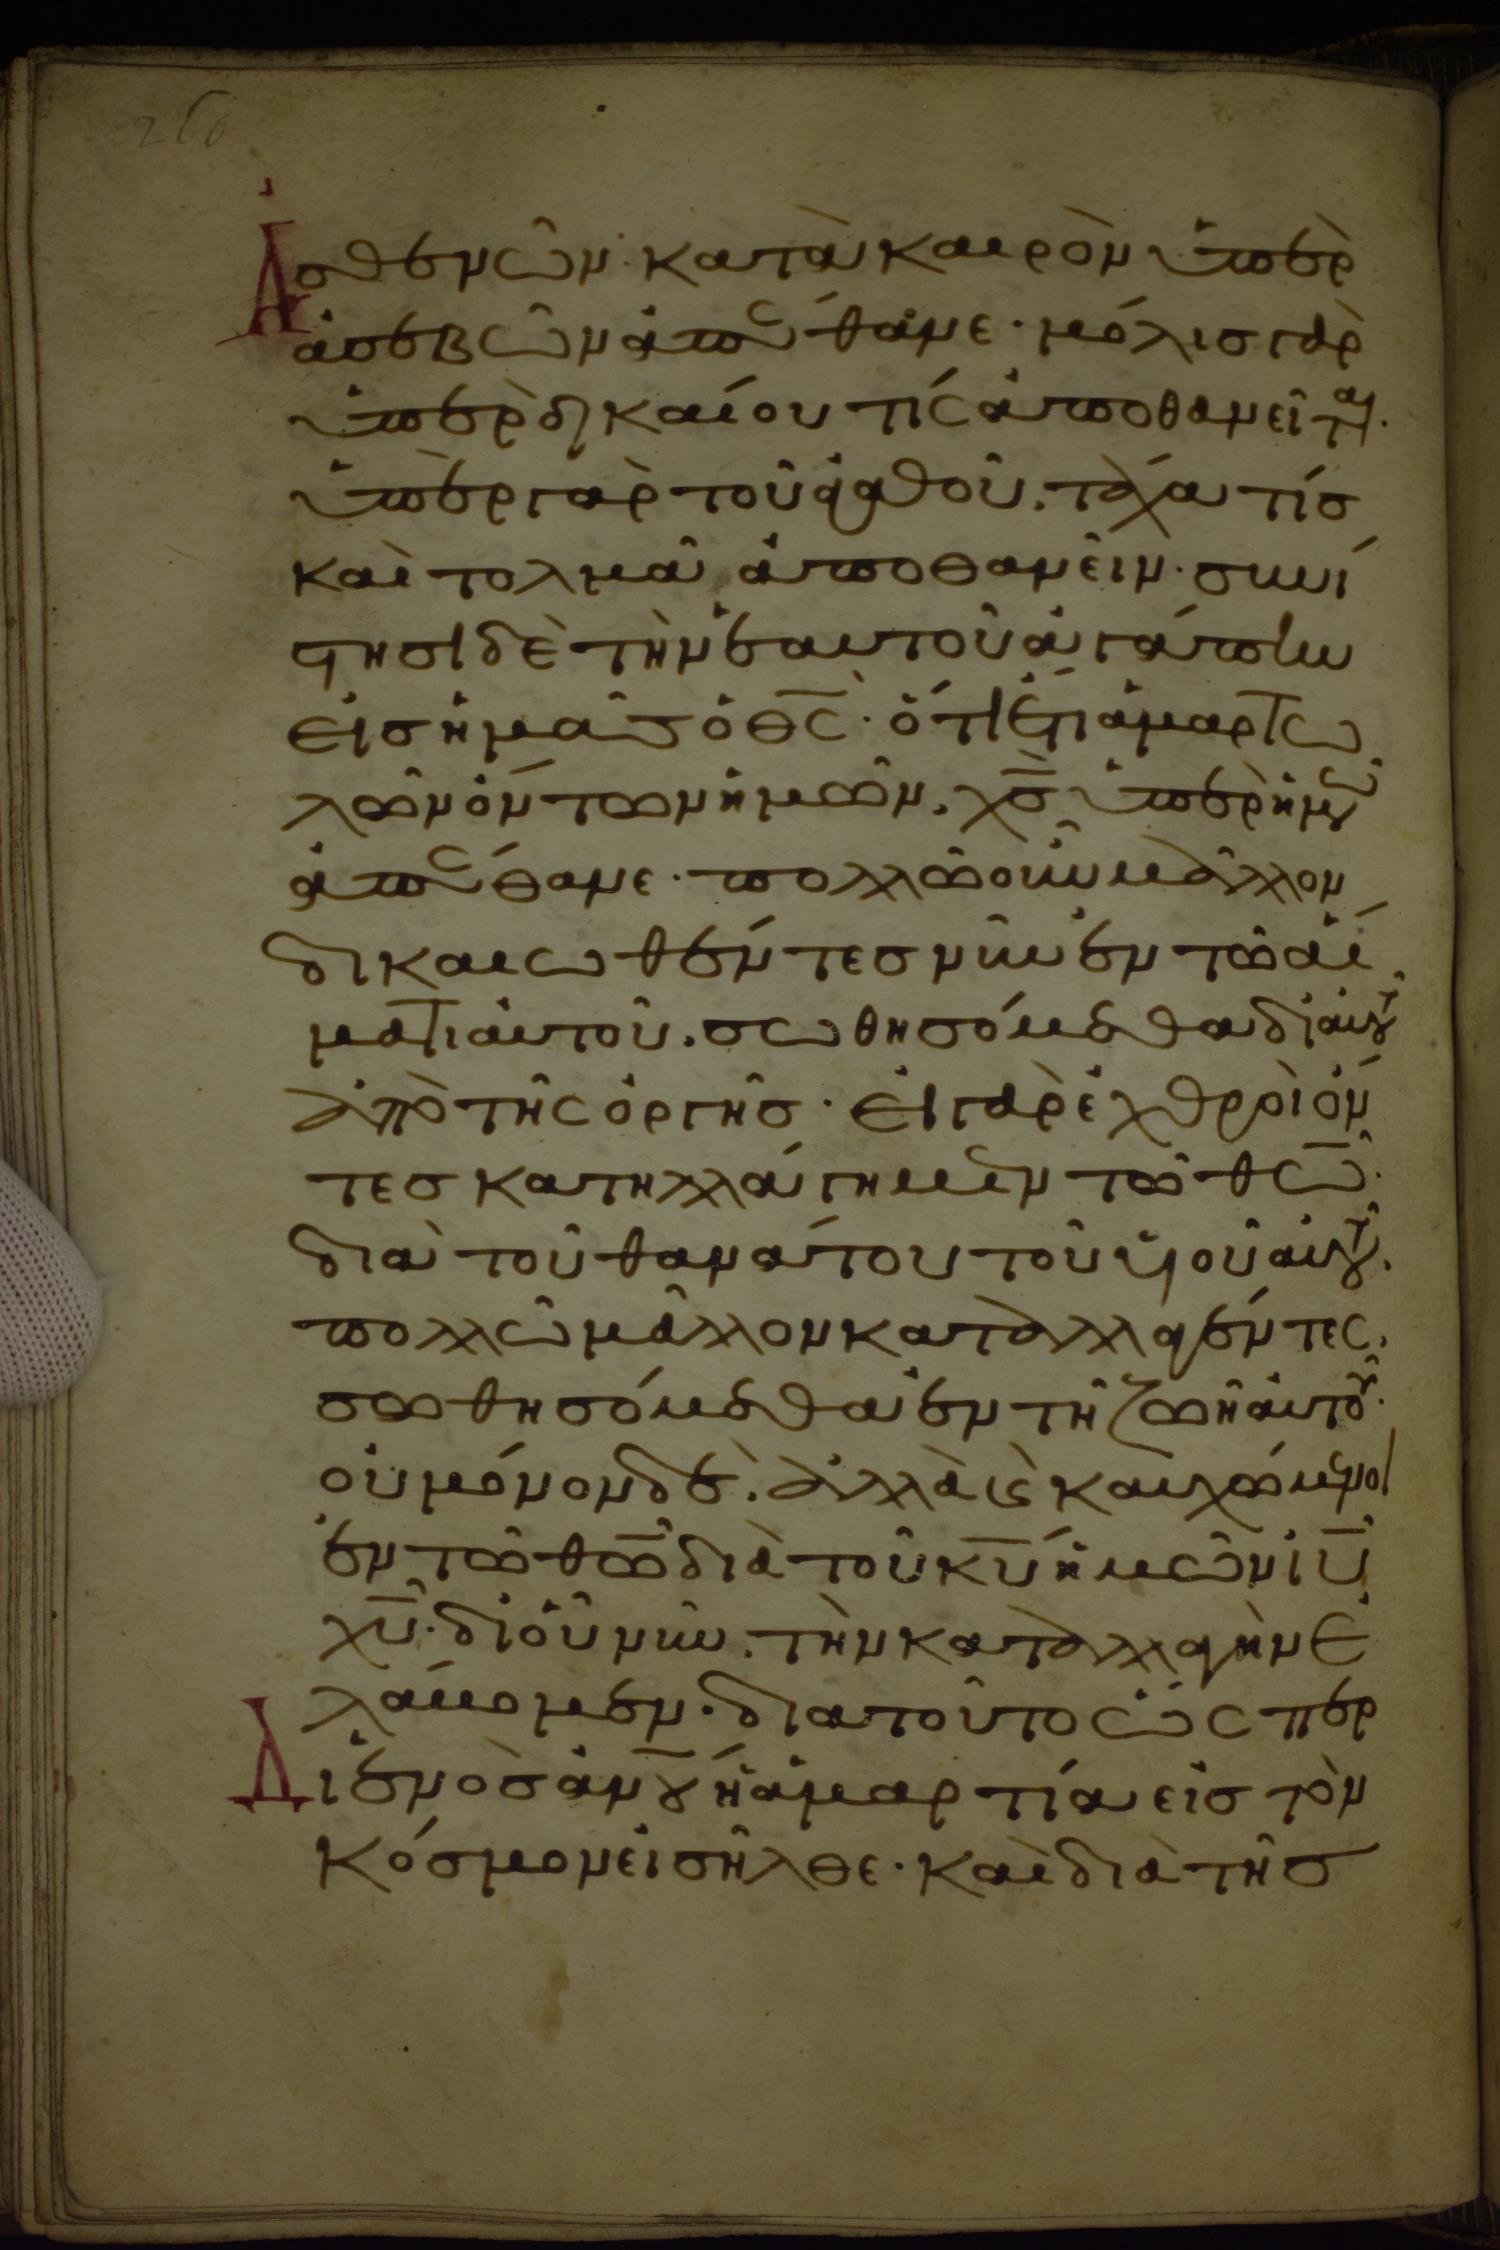 260
Ἀσθενῶν· κατὰ καιρὸν ὑπὲρ
ἀσεβῶν ἀπέθανε· μόλις γὰρ
ὑπὲρ δικαίου τίς ἀποθανεῖται·
ὑπὲρ γὰρ τοῦ ἀγαθοῦ. τάχα τίς
καὶ τολμᾶ ἀποθανεῖν· συνί
στησι δὲ τὴν ἑαυτοῦ ἀγάπην
εἰς ἡμᾶς ὁ θς· ὅτι ἔτι ἁμαρτω
λῶν ὄντων ἡμῶν. χς ὑπὲρ ἡμῶν
ἀπέθανε· πολλῶ οὖν μᾶλλον
δικαιωθέντες νῦν ἐν τῶ αἵ
ματι αὐτοῦ. σωθησόμεθα δι' αὐτοῦ
ἀπὸ τῆς ὀργῆς· εἰ γὰρ ἐχθροὶ ὄν
τες κατηλλάγημεν τῶ θω·
διὰ τοῦ θανάτου τοῦ υἱοῦ αὐτοῦ.
πολλῶ μᾶλλον καταλλαγέντες.
σωθησόμεθα ἐν τῆ ζωῆ αὐτοῦ·
οὐ μόνον δὲ. ἀλλὰ καὶ καυχώμενοι
ἐν τῶ θω διὰ τοῦ κυ ἡμῶν ιυ
χυ· δι' οὗ νῦν. τὴν καταλλαγὴν ἐ
λάβομεν· διατοῦτο ὥσπερ
Δι' ἑνὸς ἀνου ἡ ἁμαρτία εἰς τὸν
κόσμον εἰσῆλθε· καὶ διὰ τῆς